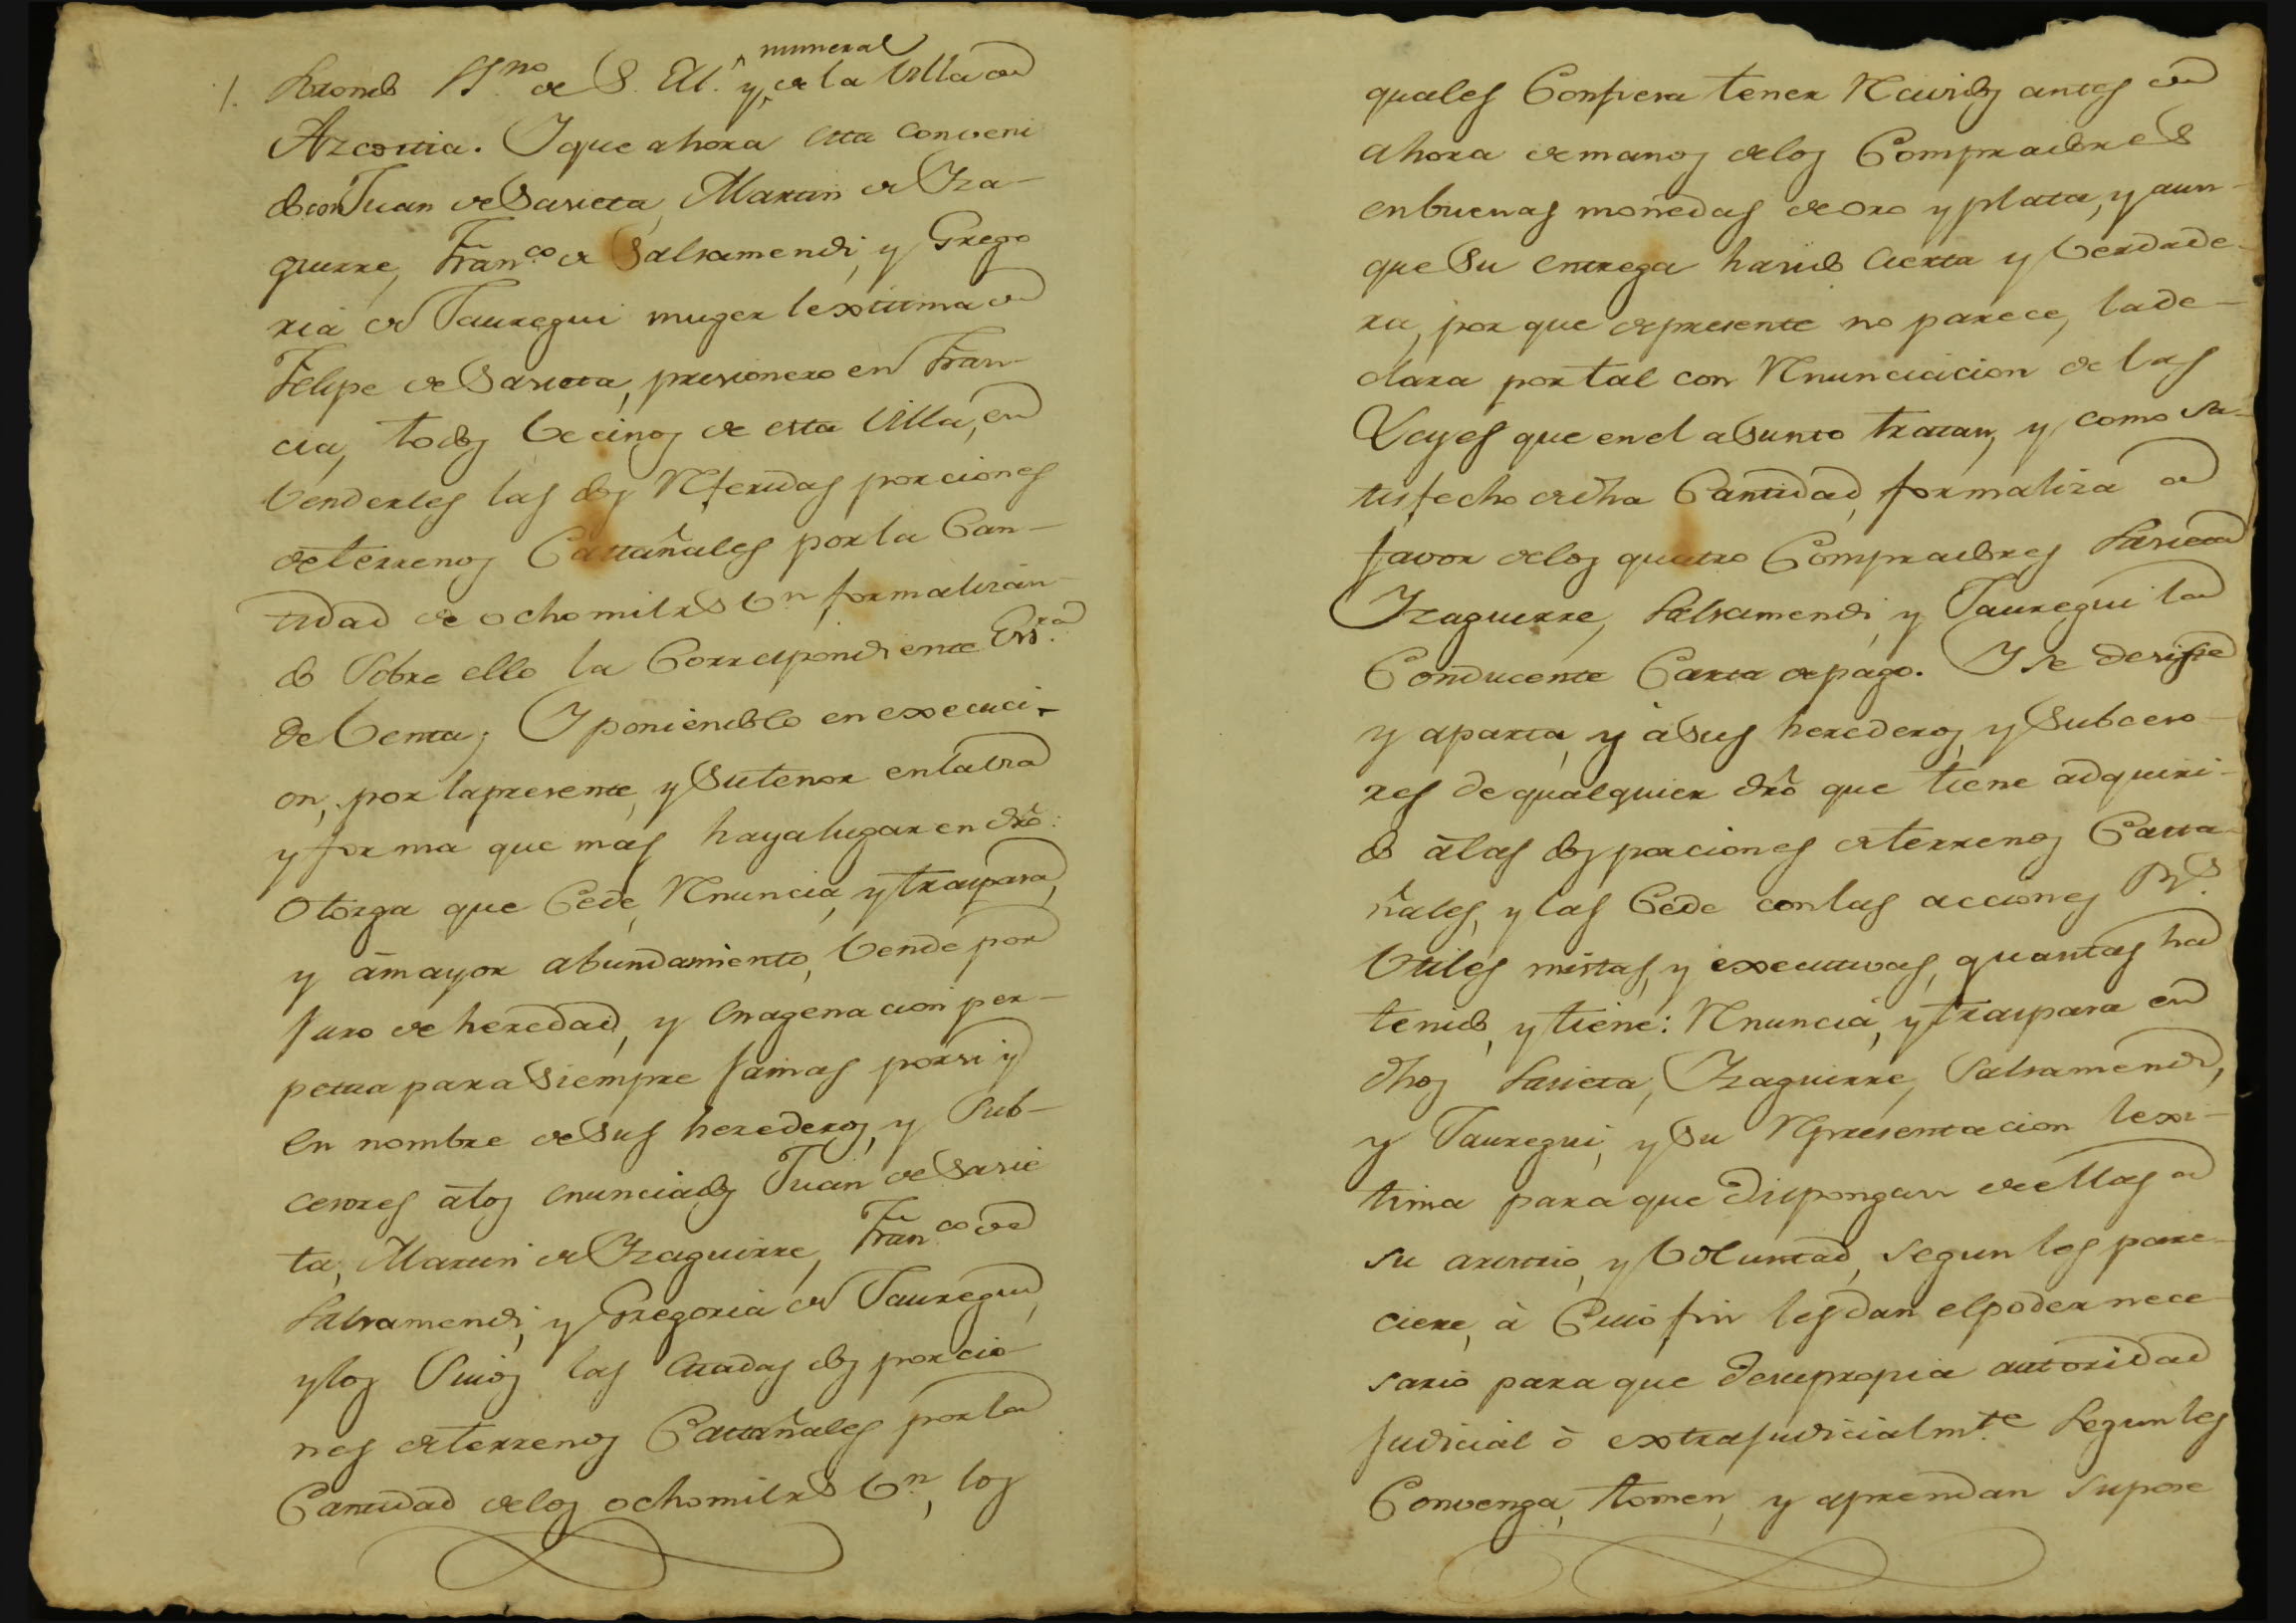 numeral
SS.no de S. M. y de la Villa de
Azcoitia. Y que ahora esta conveni
do con Juan de Sarieta, Martin de Yza-
guirre, Fran.co de Salsamendi, y Grego
ria de Jauregui muger lexitima de
Felipe de Sarieta, prisionero en Fran-
cia, todos Vecinos de esta Villa, en
Venderles las dos Referidas porciones
de terrenos Castañales por la Can-
tidad de ocho mil rs Vn formalizan-
do Sobre ello la Correspondiente Ess.ra
de Venta; Y poniendolo en execuci-
on, por la presente, y Su tenor en la via
y forma que mas haya lugar en dro:
Otorga que Cede, Renuncia, y traspasa,
y à mayor abundamiento, Vende por
Juro de heredad, y Enagenacion per-
petua para Siempre Jamas por si y
En nombre de Sus herederos, y Sub-
cesores à los enunciados Juan de Sarie
ta, Martin de Yzaguirre, Fran.co de
Salsamendi, y Gregoria de Jauregui,
y los Suios las Citadas dos porcio-
nes de terrenos Castañales por la
Cantidad de los ocho mil rs Vn, los
quales Confiesa tener Recividos antes de
ahora de manos de los Compradores
en buenas monedas de oro y plata, y aun-
que Su entrega ha sido Cierta y Verdade-
ra, por que de presente no parece, la de-
clara por tal con Renunciacion de las
Leyes que en el asunto tratan, y como sa-
tisfecho de dha Cantidad, formaliza a
favor de los quatro Compradores Sarieta
Yzaguirre, Salsamendi y Jauregui la
Conducente Carta de pago. Y se desiste
y aparta, y à Sus herederos, y Subceso-
res de qualquier dro que tiene adquiri-
do à las dos porciones de terrenos Casta-
ñales, y las Cede con las acciones Rs.
Utiles mistas, y executivas, quantas ha
tenido, y tiene: Renuncia, y traspasa en
dhos Sarieta, Yzaguirre, Salsamendi,
y Jauregui, y Su Representacion lexi-
tima para que dispongan de ellas a
su arvitrio, y Voluntad, segun les pare-
ciere, à Cuio fin les dan el poder nece-
sario para que de su propia autoridad
Judicial ò extrajudicialm.te Segun les
Convenga, tomen, y aprendan su pose